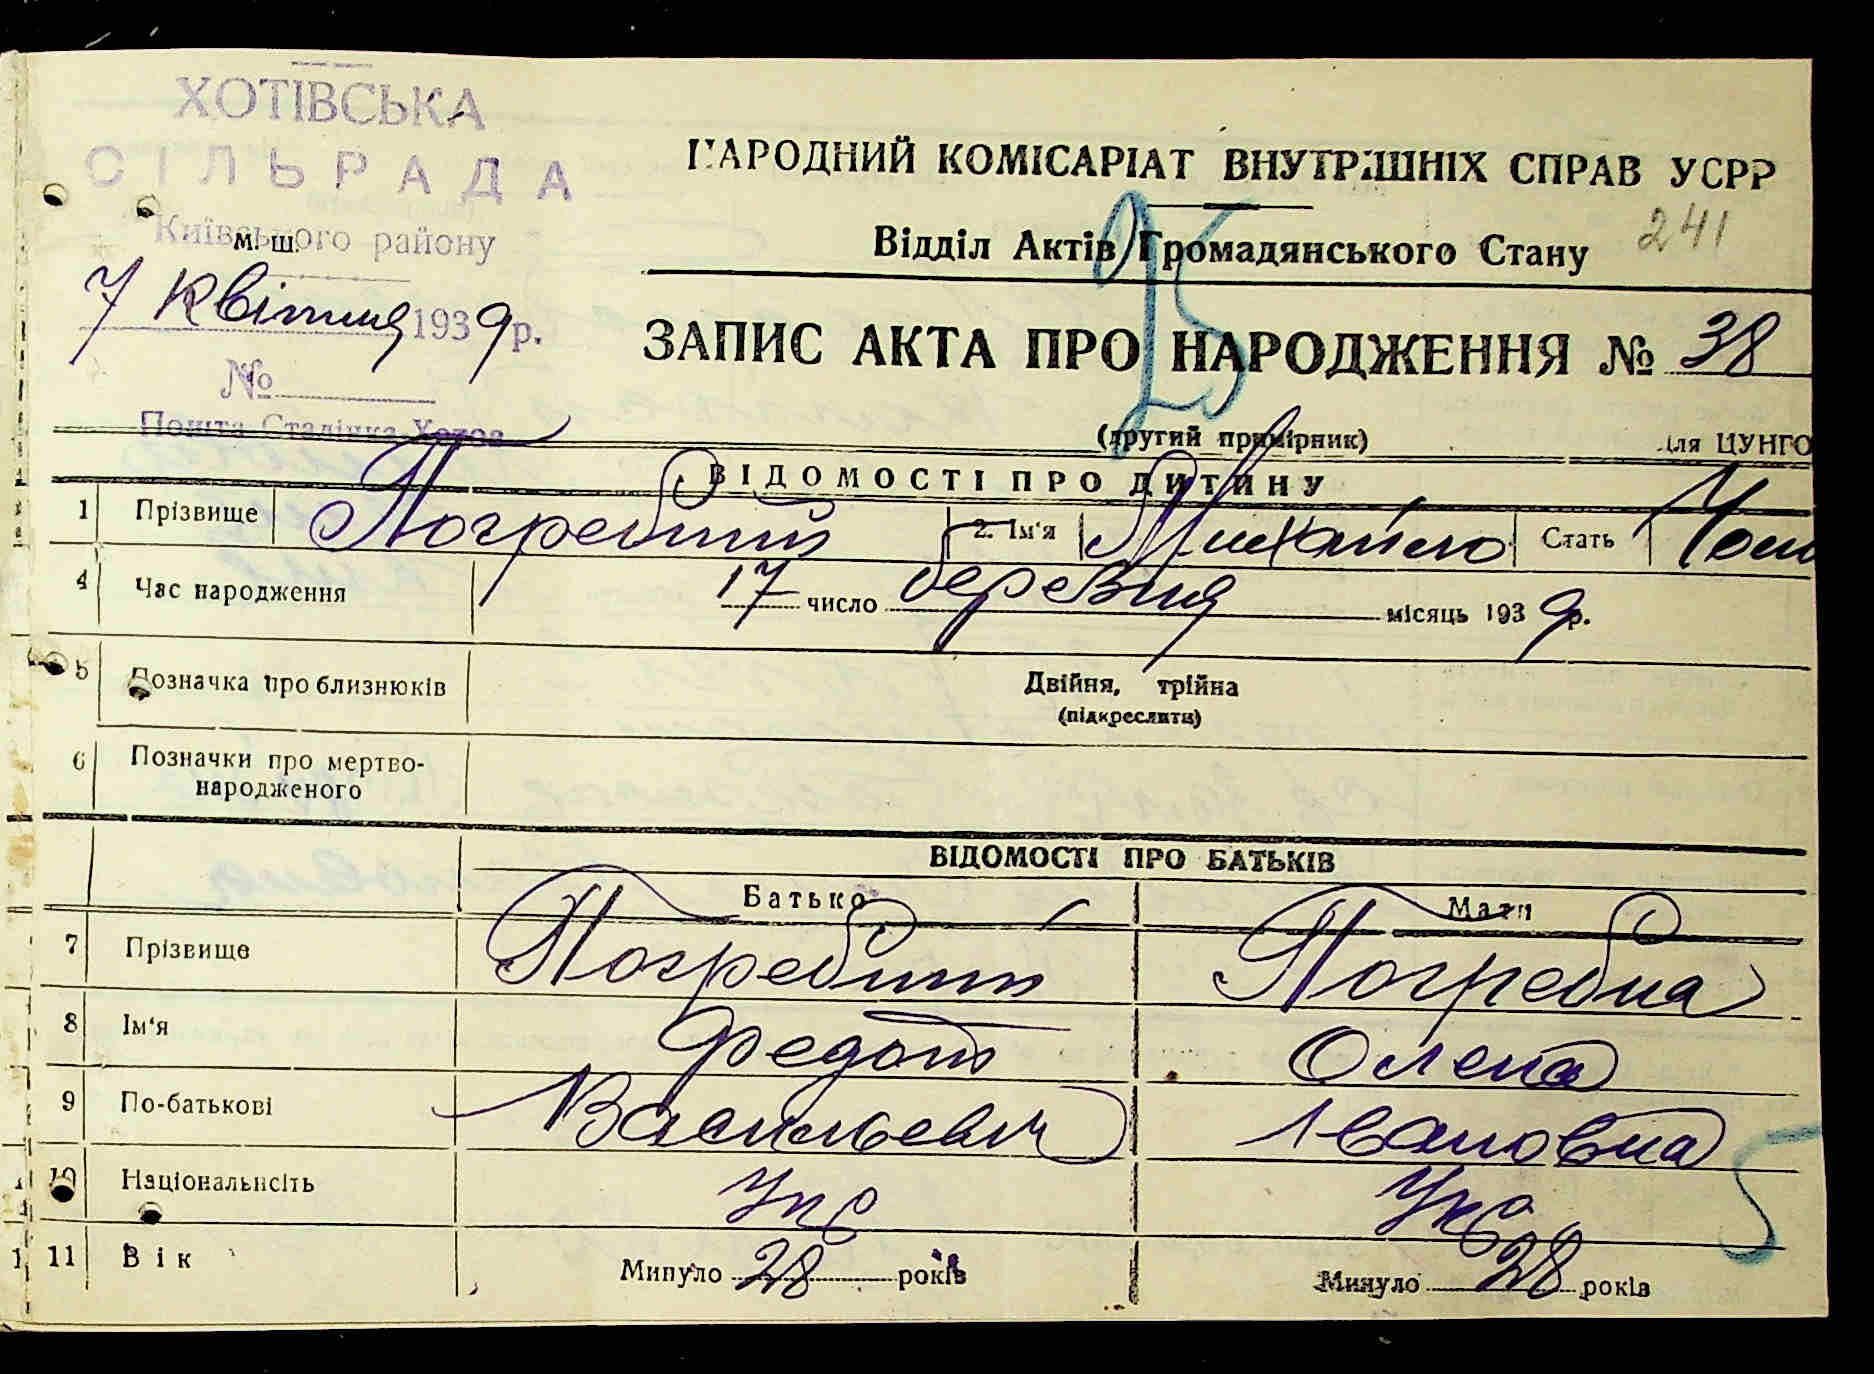 ХОТІВСЬКА
СІЛЬРАДА
Київського району
м. ш.
7 Квітня 1939 р.
№
Пошта Сталінка-Хотов
НАРОДНИЙ КОМІСАРІАТ ВНУТРІШНІХ СПРАВ УСРР
Відділ Актів Громадянського Стану
241
25
ЗАПИС АКТА ПРО НАРОДЖЕННЯ № 38
(другий примірник) для ЦУНГО
ВІДОМОСТІ ПРО ДИТИНУ
1 Прізвище Погребний 2. Ім'я Михайло Стать Чол
4 Час народження 17 число березня місяць 1939 р.
5 Позначка про близнюків Двійня, трійна
(підкреслити)
6 Позначки про мертво-
народженого
ВІДОМОСТІ ПРО БАТЬКІВ
Батько Мати
7 Прізвище Погребний Погребна
8 Ім'я Федот Олена
9 По-батькові Васильевич Івановна
10 Національність Укр Укр
11 Вік Минуло 28 років Минуло 28 років